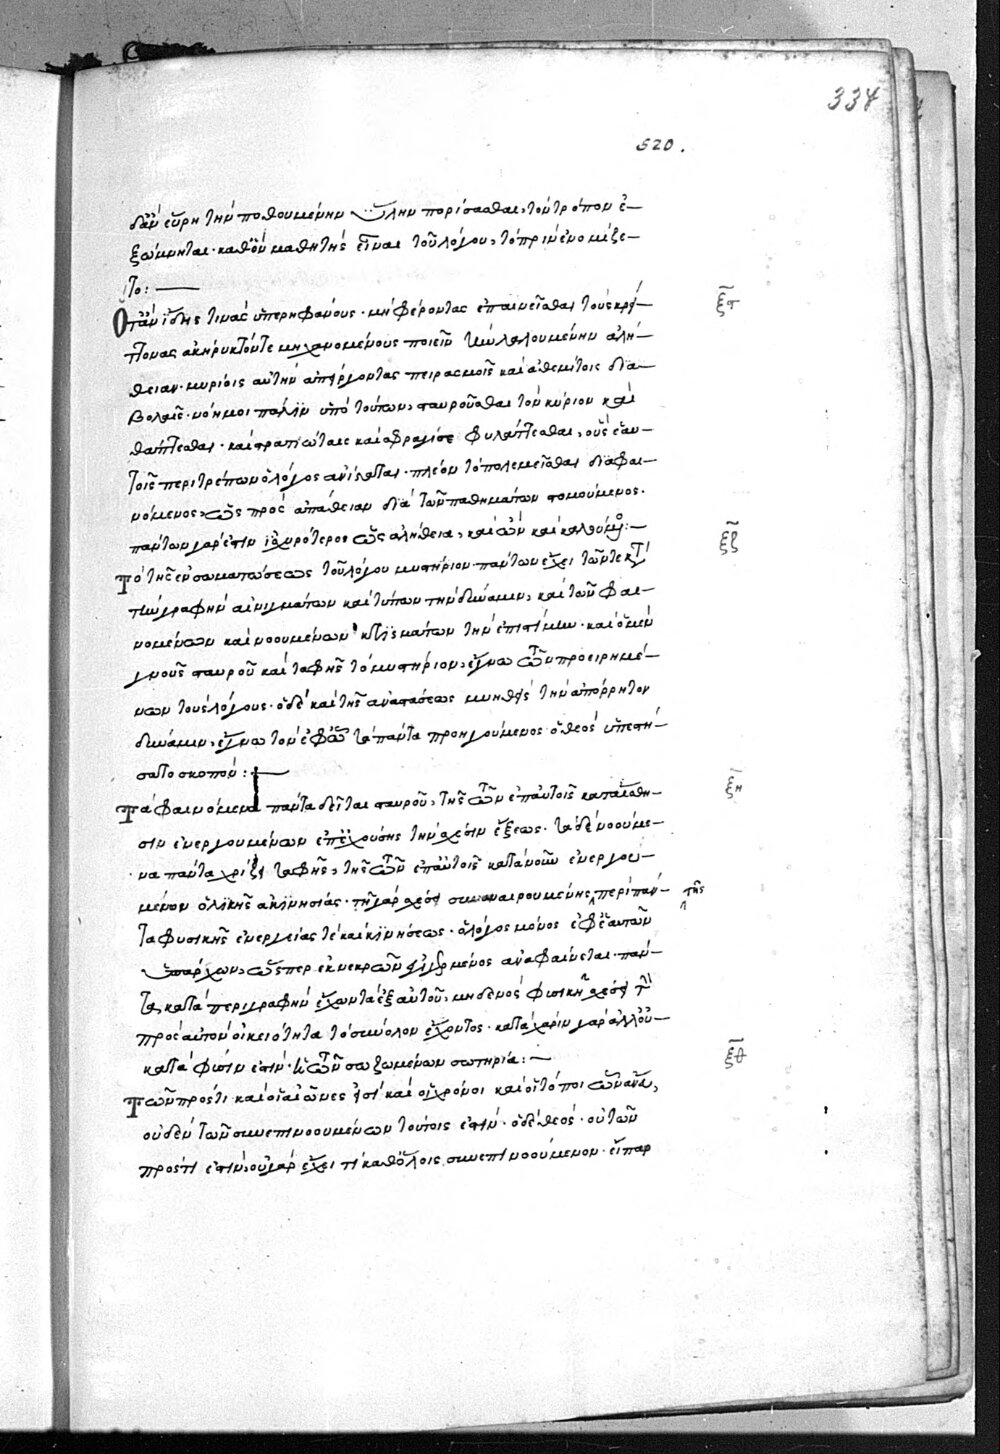 337
520.
δἂν εὕρη τὴν ποθουμένην ὕλην πορίσασθαι, τὸν τρόπον ἐ-
ξώμνηται· καθ' ὃν μαθητὴς εἶναι τοῦ λόγου, τὸ πρὶν ἐνομίζε-
το:—
Ὅταν ἴδης τινὰς ὑπερηφάνους· μὴ φέροντας ἐπαινεῖσθαι τοὺς κρεί-
ττονας ἀκήρυκτόν τε μηχανωμένους ποιεῖν τὴν λαλουμένην ἀλή-
θειαν· μυρίοις αὐτὴν ἀπείργοντας πειρασμοῖς καὶ ἀθεμίτοις δια-
βολαῖς· νόει μοι πάλιν ὑπὸ τούτων, σταυροῦσθαι τὸν κύριον καὶ
θάπτεσθαι· καὶ στρατιώταις καὶ σφραγῖσι φυλάττεσθαι, οὓς ἑαυ-
τοῖς περιτρέπων ὁ λόγος ἀνίσταται· πλέον τὸ πολεμεῖσθαι διαφαι-
νόμενος, ὡς πρὸς ἀπάθειαν διὰ τῶν παθημάτων στομούμενος.
πάντων γάρ ἐστιν ἰσχυρότερος ὡς ἀλήθεια, καὶ ὢν καὶ καλούμενος:—
Τὸ τῆς ἐνσωματώσεως τοῦ λόγου μυστήριον· πάντων ἔχει τῶν τε κατὰ
τὴν γραφὴν αἰνιγμάτων καὶ τύπων τὴν δύναμιν, καὶ τῶν φαι-
νομένων καὶ νοουμένων κτισμάτων τὴν ἐπιστήμην· καὶ ὁ μὲν
γνοὺς σταυροῦ καὶ ταφῆς τὸ μυστήριον, ἔγνω τῶν προειρημέ-
νων τοὺς λόγους· ὁ δὲ καὶ τῆς ἀναστάσεως μυηθεὶς τὴν ἀπόρρητον
δύναμιν, ἔγνω τὸν ἐφ' ᾧ τὰ πάντα προηγούμενος ὁ θεὸς ὑπεστή-
σατο σκοπόν:—
Τὰ φαινόμενα πάντα δεῖται σταυροῦ, τῆς τῶν ἐπ' αὐτοῖς κατ' αἴσθη-
σιν ἐνεργουμένων ἐπεχούσης τὴν σχέσιν ἕξεως· τὰ δὲ νοούμε-
να πάντα χρήζει ταφῆς, τῆς τῶν ἐπ' αὐτοῖς κατὰ νοῦν ἐνεργου-
μένων ὁλικῆς ἀκινησίας· τῇ γὰρ σχέσει συναναιρουμένης περὶ πάν- τῆς
τα φυσικῆς ἐνεργείας τε καὶ κινήσεως· ὁ λόγος μόνος ἐφ' ἑαυτῶν
ὑπάρχων, ὥσπερ ἐκ νεκρῶν ἐγηγερμένος ἀναφαίνεται· πάν-
τα κατὰ περιγραφὴν ἔχων τὰ ἐξ αὐτοῦ, μηδενὸς φυσικῇ σχέσει τὴν
πρὸς αὐτὸν οἰκειότητα τὸ σύνολον ἔχοντος· κατὰ χάριν γὰρ ἀλλ' οὐ
κατὰ φύσιν ἐστὶν· ἡ τῶν σωζομένων σωτηρία:—
Τῶν πρός τι καὶ οἱ αἰῶνες εἰσὶ καὶ οἱ χρόνοι καὶ οἱ τόποι ὧν ἄνευ,
οὐδὲν τῶν συνεπινοουμένων τούτοις ἐστίν· ὁ δὲ θεός· οὐ τῶν
πρός τι ἐστιν, οὐ γὰρ ἔχει τι καθόλοις συνεπινοούμενον· εἴπαρ
ξστ
ξζ
ξη
ξθ